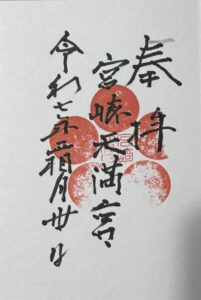 奉拝
宮崎天満宮
令和七年霜月廿日